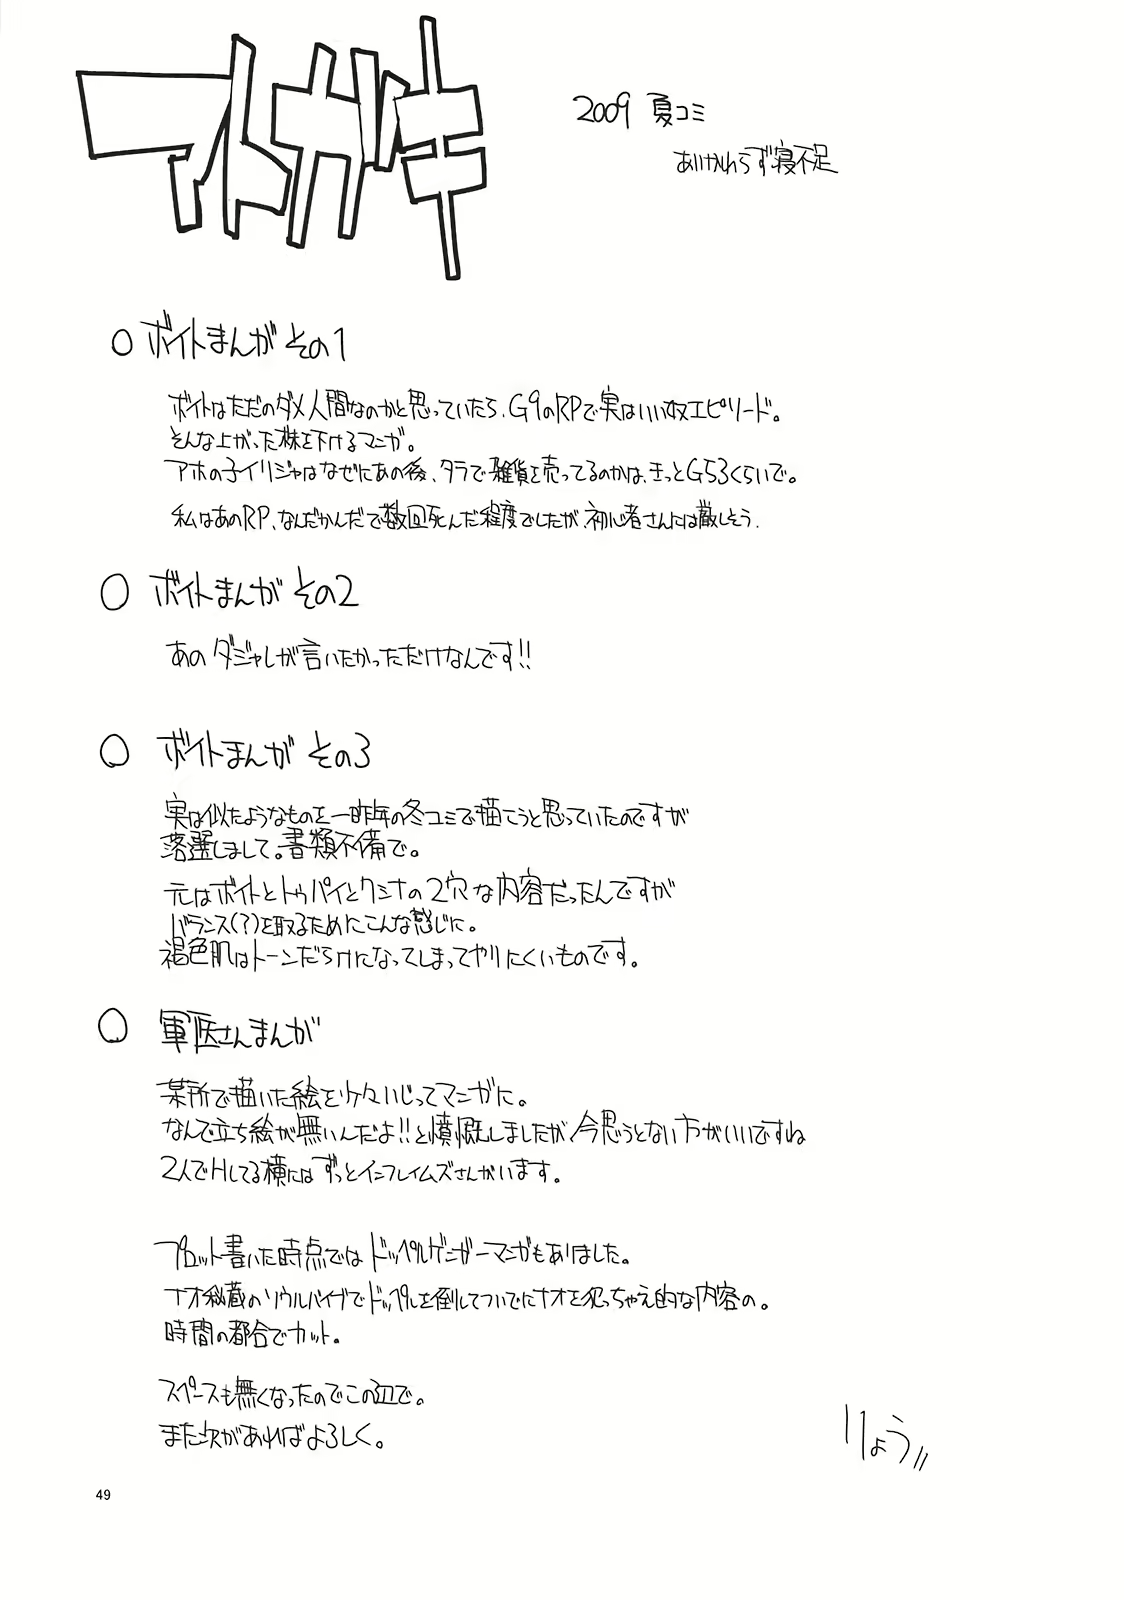 アトガキ
2009 夏コミ
あいかわらず寝不足
○ ボイトまんが その1
ボイトはただのダメ人間なのかと思っていたら、G9のRPで実はいい奴エピソード。
そんな上がった株を下げるマンガ。
アホの子イリジャはなぜにあの後、タラで雑貨を売ってるのかは、きっとG53くらいで。
私はあのRP、なんだかんだで数回死んだ程度でしたが、初心者さんには厳しそう.
○ ボイトまんが その2
あのダジャレが言いたかっただけなんです!!
○ ボイトまんが その3
実は似たようなものを一昨年の冬コミで描こうと思っていたのですが
落選しまして。書類不備で。
元はボイトとトゥパイとクシナの2穴な内容だったんですが
バランス(?)を取るためにこんな感じに。
褐色肌はトーンだらけになってしまってやりにくいものです。
○ 軍医さんまんが
某所で描いた絵を少々いじってマンガに。
なんで立ち絵が無いんだよ!!と憤慨しましたが、今思うとない方がいいですね
2人でHしてる横にはずっとインフレイムズさんがいます。
プロット書いた時点ではドッペルゲンガーマンガもありました。
ナオ秘蔵のソウルバイブでドッペルを倒してついでにナオを犯っちゃえ的な内容の。
時間の都合でカット。
スペースも無くなったのでこの辺で。
また次があればよろしく。
りょう//
49